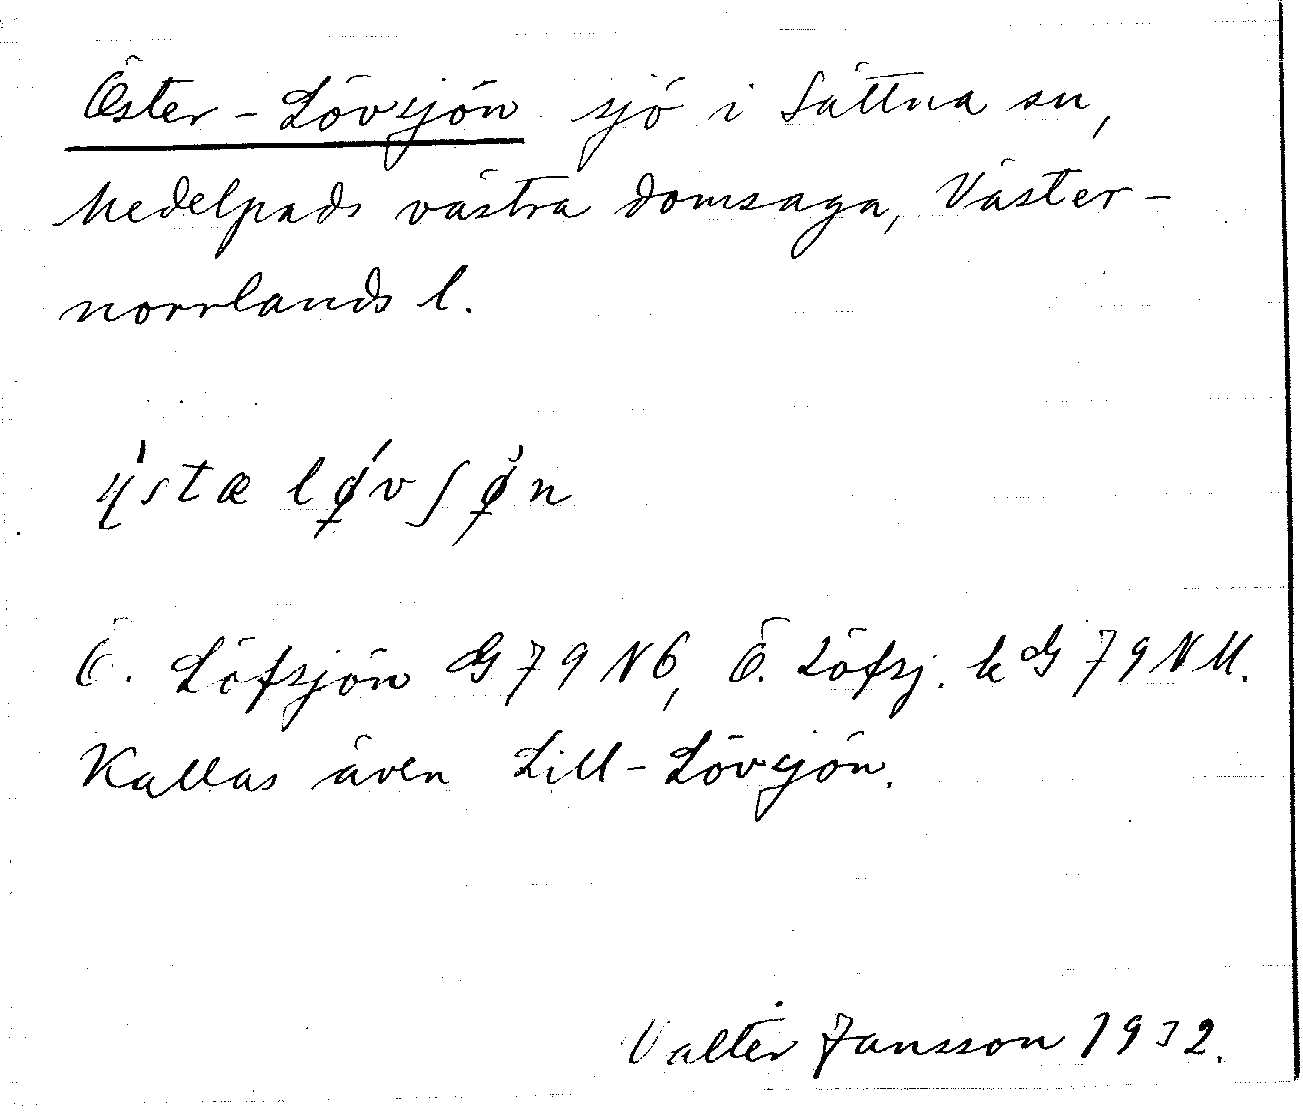 Öster-Lövsjön sjö i Sättna sn,
Medelpads västra domsaga, Väster-
norrlands l.
ýstæ lǿvʃø̀n
Ö. Löfsjön G 79 NÖ, Ö. Löfsj. k G 79 NU.
Kallas även Lill-Lövsjön.
Valter Jansson 1932.